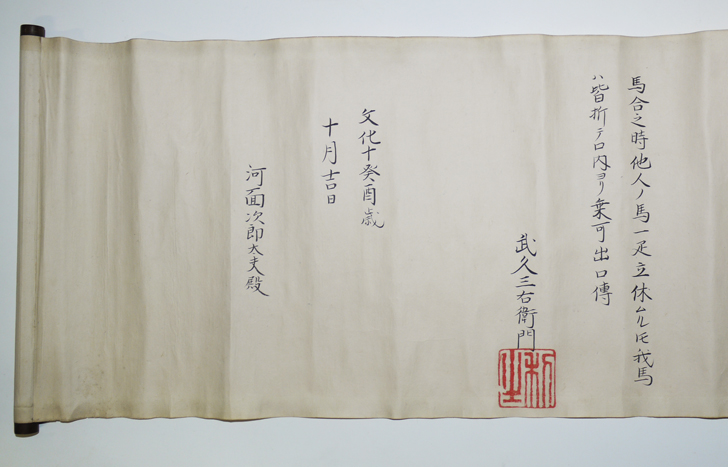 馬合之時他人ノ馬一疋立休ムル𪜈我馬
ハ皆折テ口内ヨリ乗可出口傳
武久三右衛門
文化十癸酉歳
十月吉日
河面次郎太夫殿